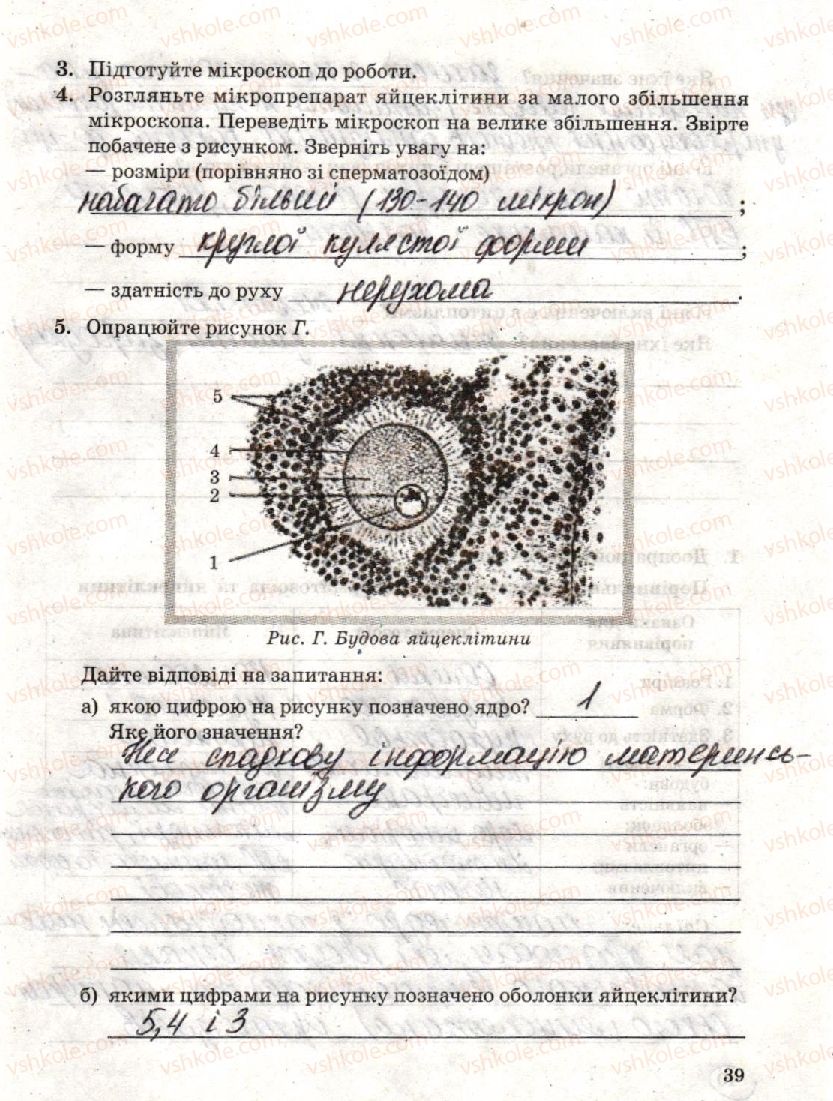 3. Підготуйте мікроскоп до роботи.
4. Розгляньте мікропрепарат яйцеклітини за малого збільшення
мікроскопа. Переведіть мікроскоп на велике збільшення. Звірте
побачене з рисунком. Зверніть увагу на:
— розміри (порівняно зі сперматозоїдом)
набагато більший (130-140 мікрон) ;
— форму круглої кулястої форми ;
— здатність до руху нерухома .
5. Опрацюйте рисунок Г.
5
4
3
2
1
Рис. Г. Будова яйцеклітини
Дайте відповіді на запитання:
а) якою цифрою на рисунку позначено ядро? 1
Яке його значення?
Несе спадкову інформацію материнсь-
кого організму
б) якими цифрами на рисунку позначено оболонки яйцеклітини?
5,4 і 3
39
vshkole.com